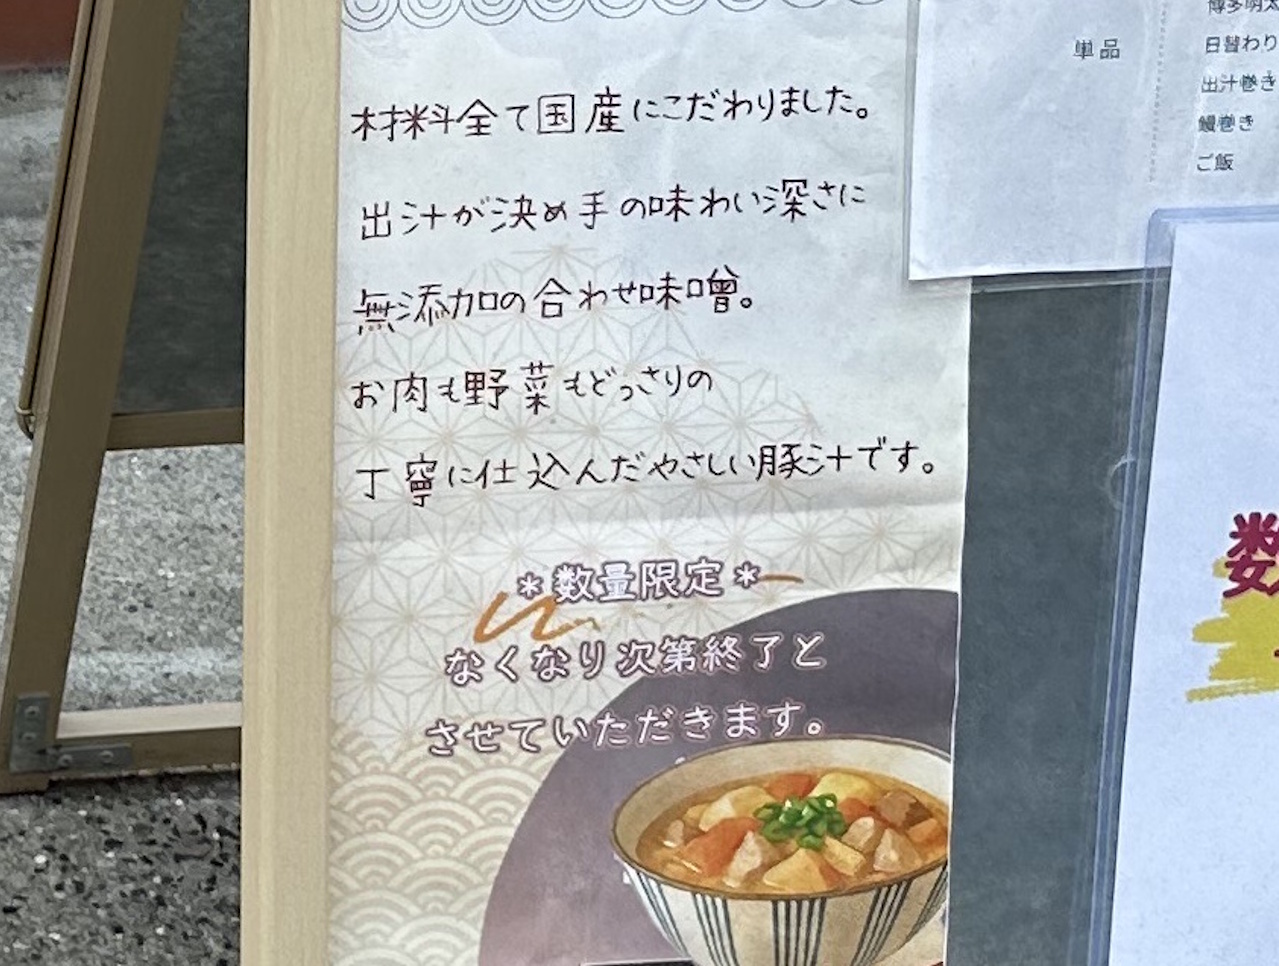 材料全て国産にこだわりました。
出汁が決め手の味わい深さに
無添加の合わせ味噌。
お肉も野菜もどっさりの
丁寧に仕込んだやさしい豚汁です。
*数量限定*
なくなり次第終了と
させていただきます。
単品
博多明太
日替わり
出汁巻き
鰻巻き
ご飯
数